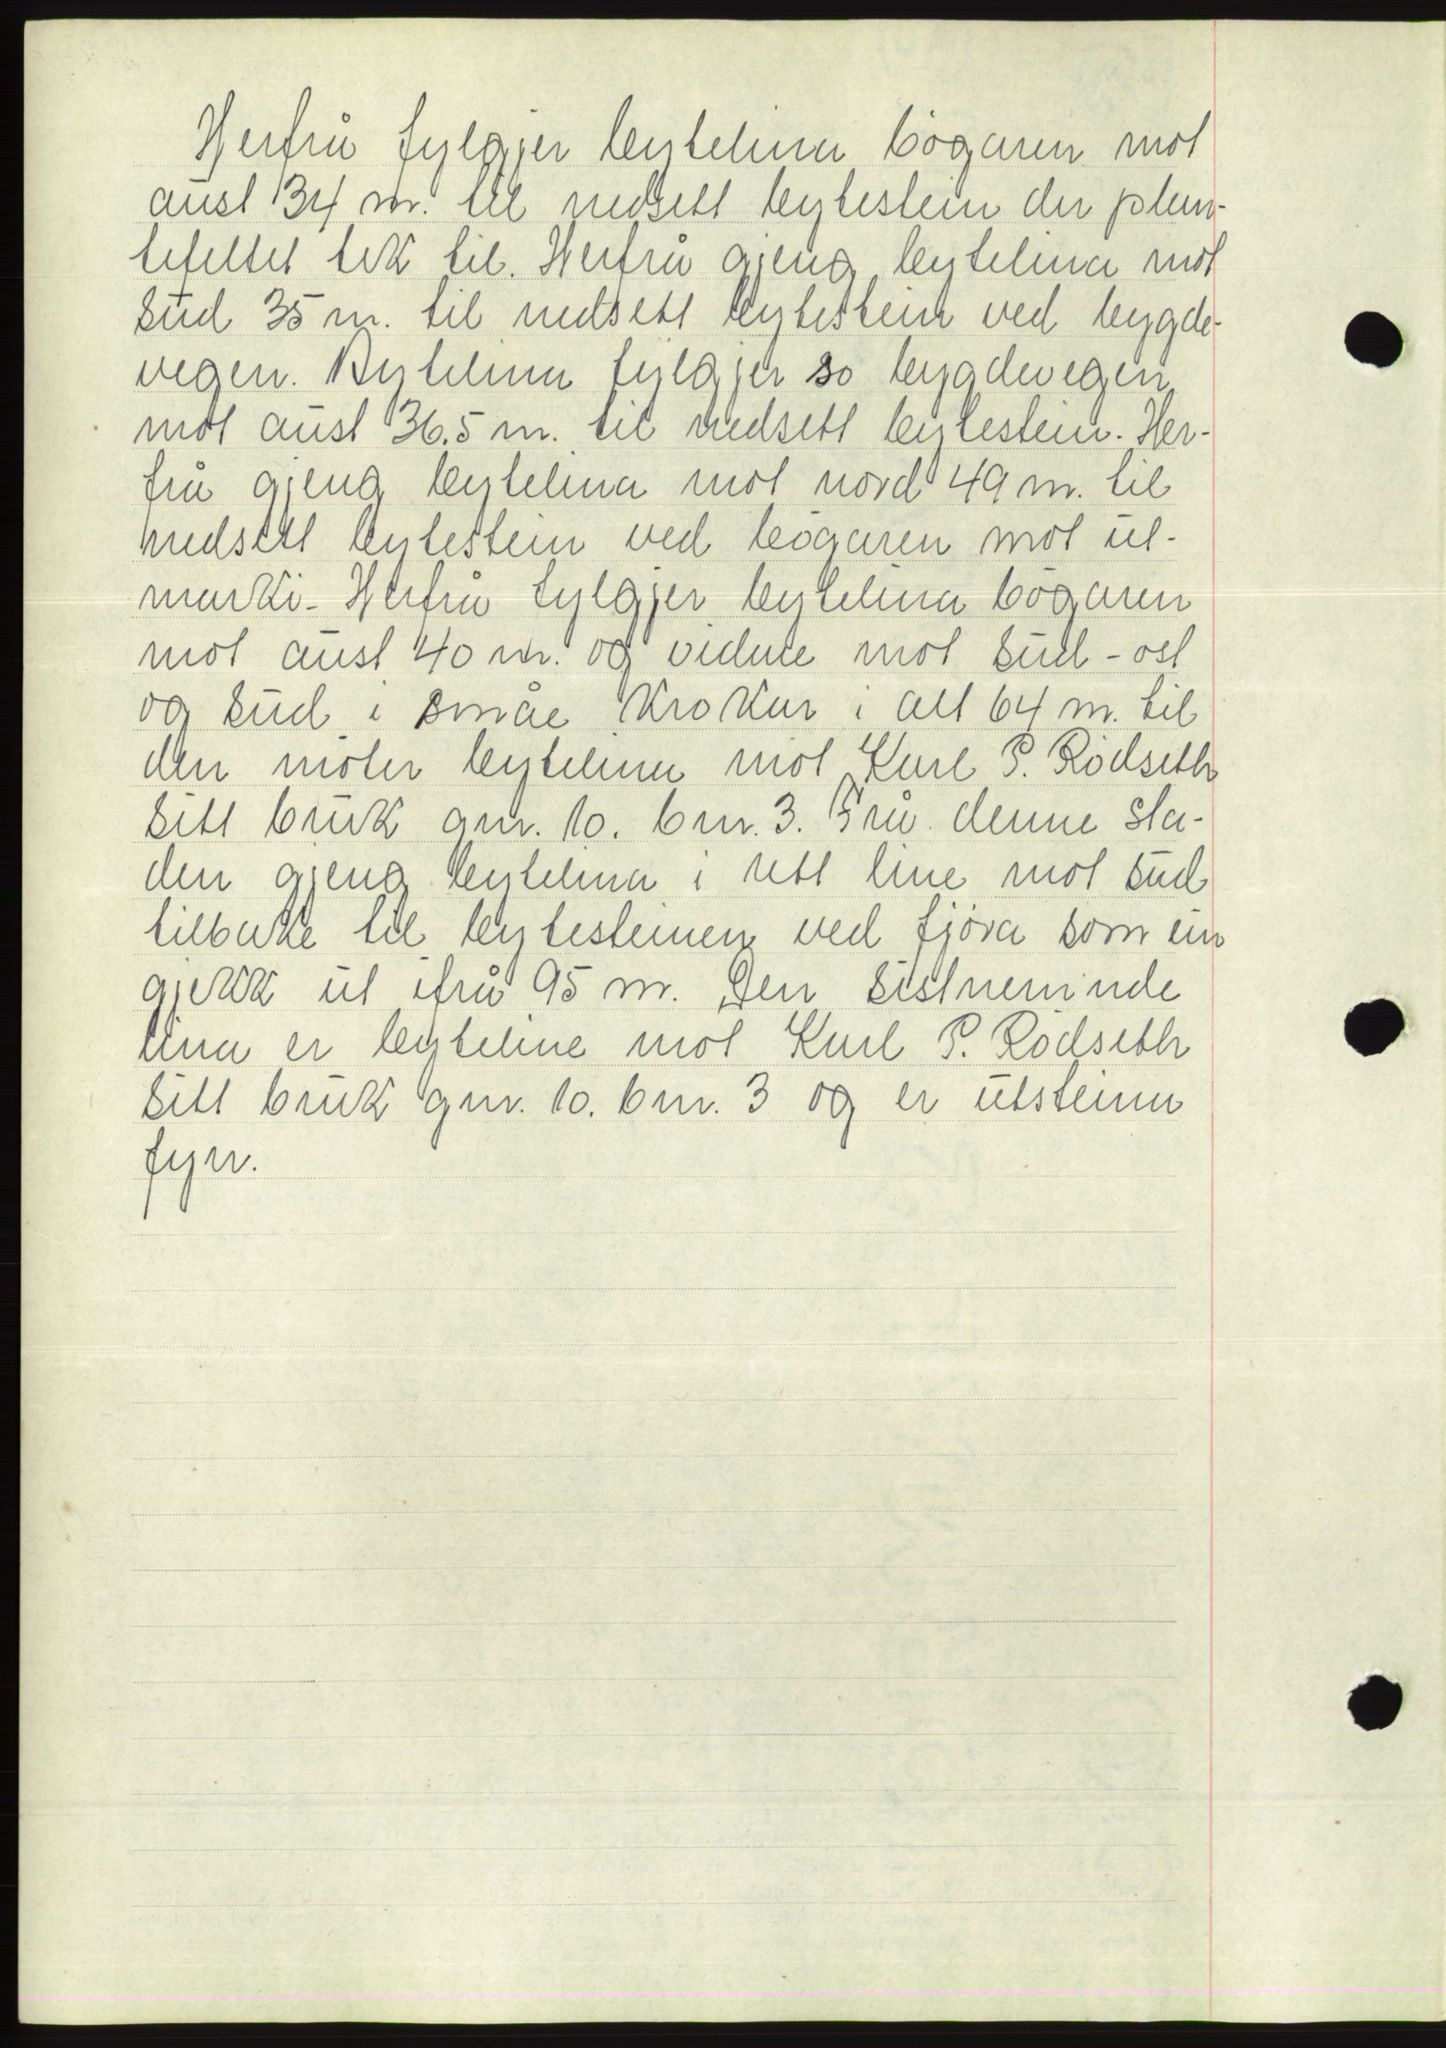 Herfrå fylgjer bytelina bögaren mot
aust 34 m. til nedsett bytestein der plan-
tefeltet tek til. Herfrå gjeng bytelina mot
sud 35 m. til nedsett bytestein ved bygde-
vegen. Bytelina fylgjer so bygdevegen
mot aust 36.5 m. til nedsett bytestein. Her-
frå gjeng bytelina mot nord 49 m. til
nedsett bytestein ved bögaren mot ut-
marki- Herfrå fylgjer bytelina bögaren
mot aust 40 m. og vidare mot sud-ost
og sud i småe krokar i alt 64 m. til
den möter bytelina mot Karl P. Rödseth
sitt bruk gnr. 10. bnr. 3. Frå denne sta-
den gjeng bytelina i rett line mot sud
tilbake til bytesteinen ved fjöra som ein
gjekk ut ifrå 95 m. Den sistnemnde
lina er byteline mot Karl P. Rödseth
sitt bruk gnr. 10. bnr. 3 og er utsteina
fyrr.